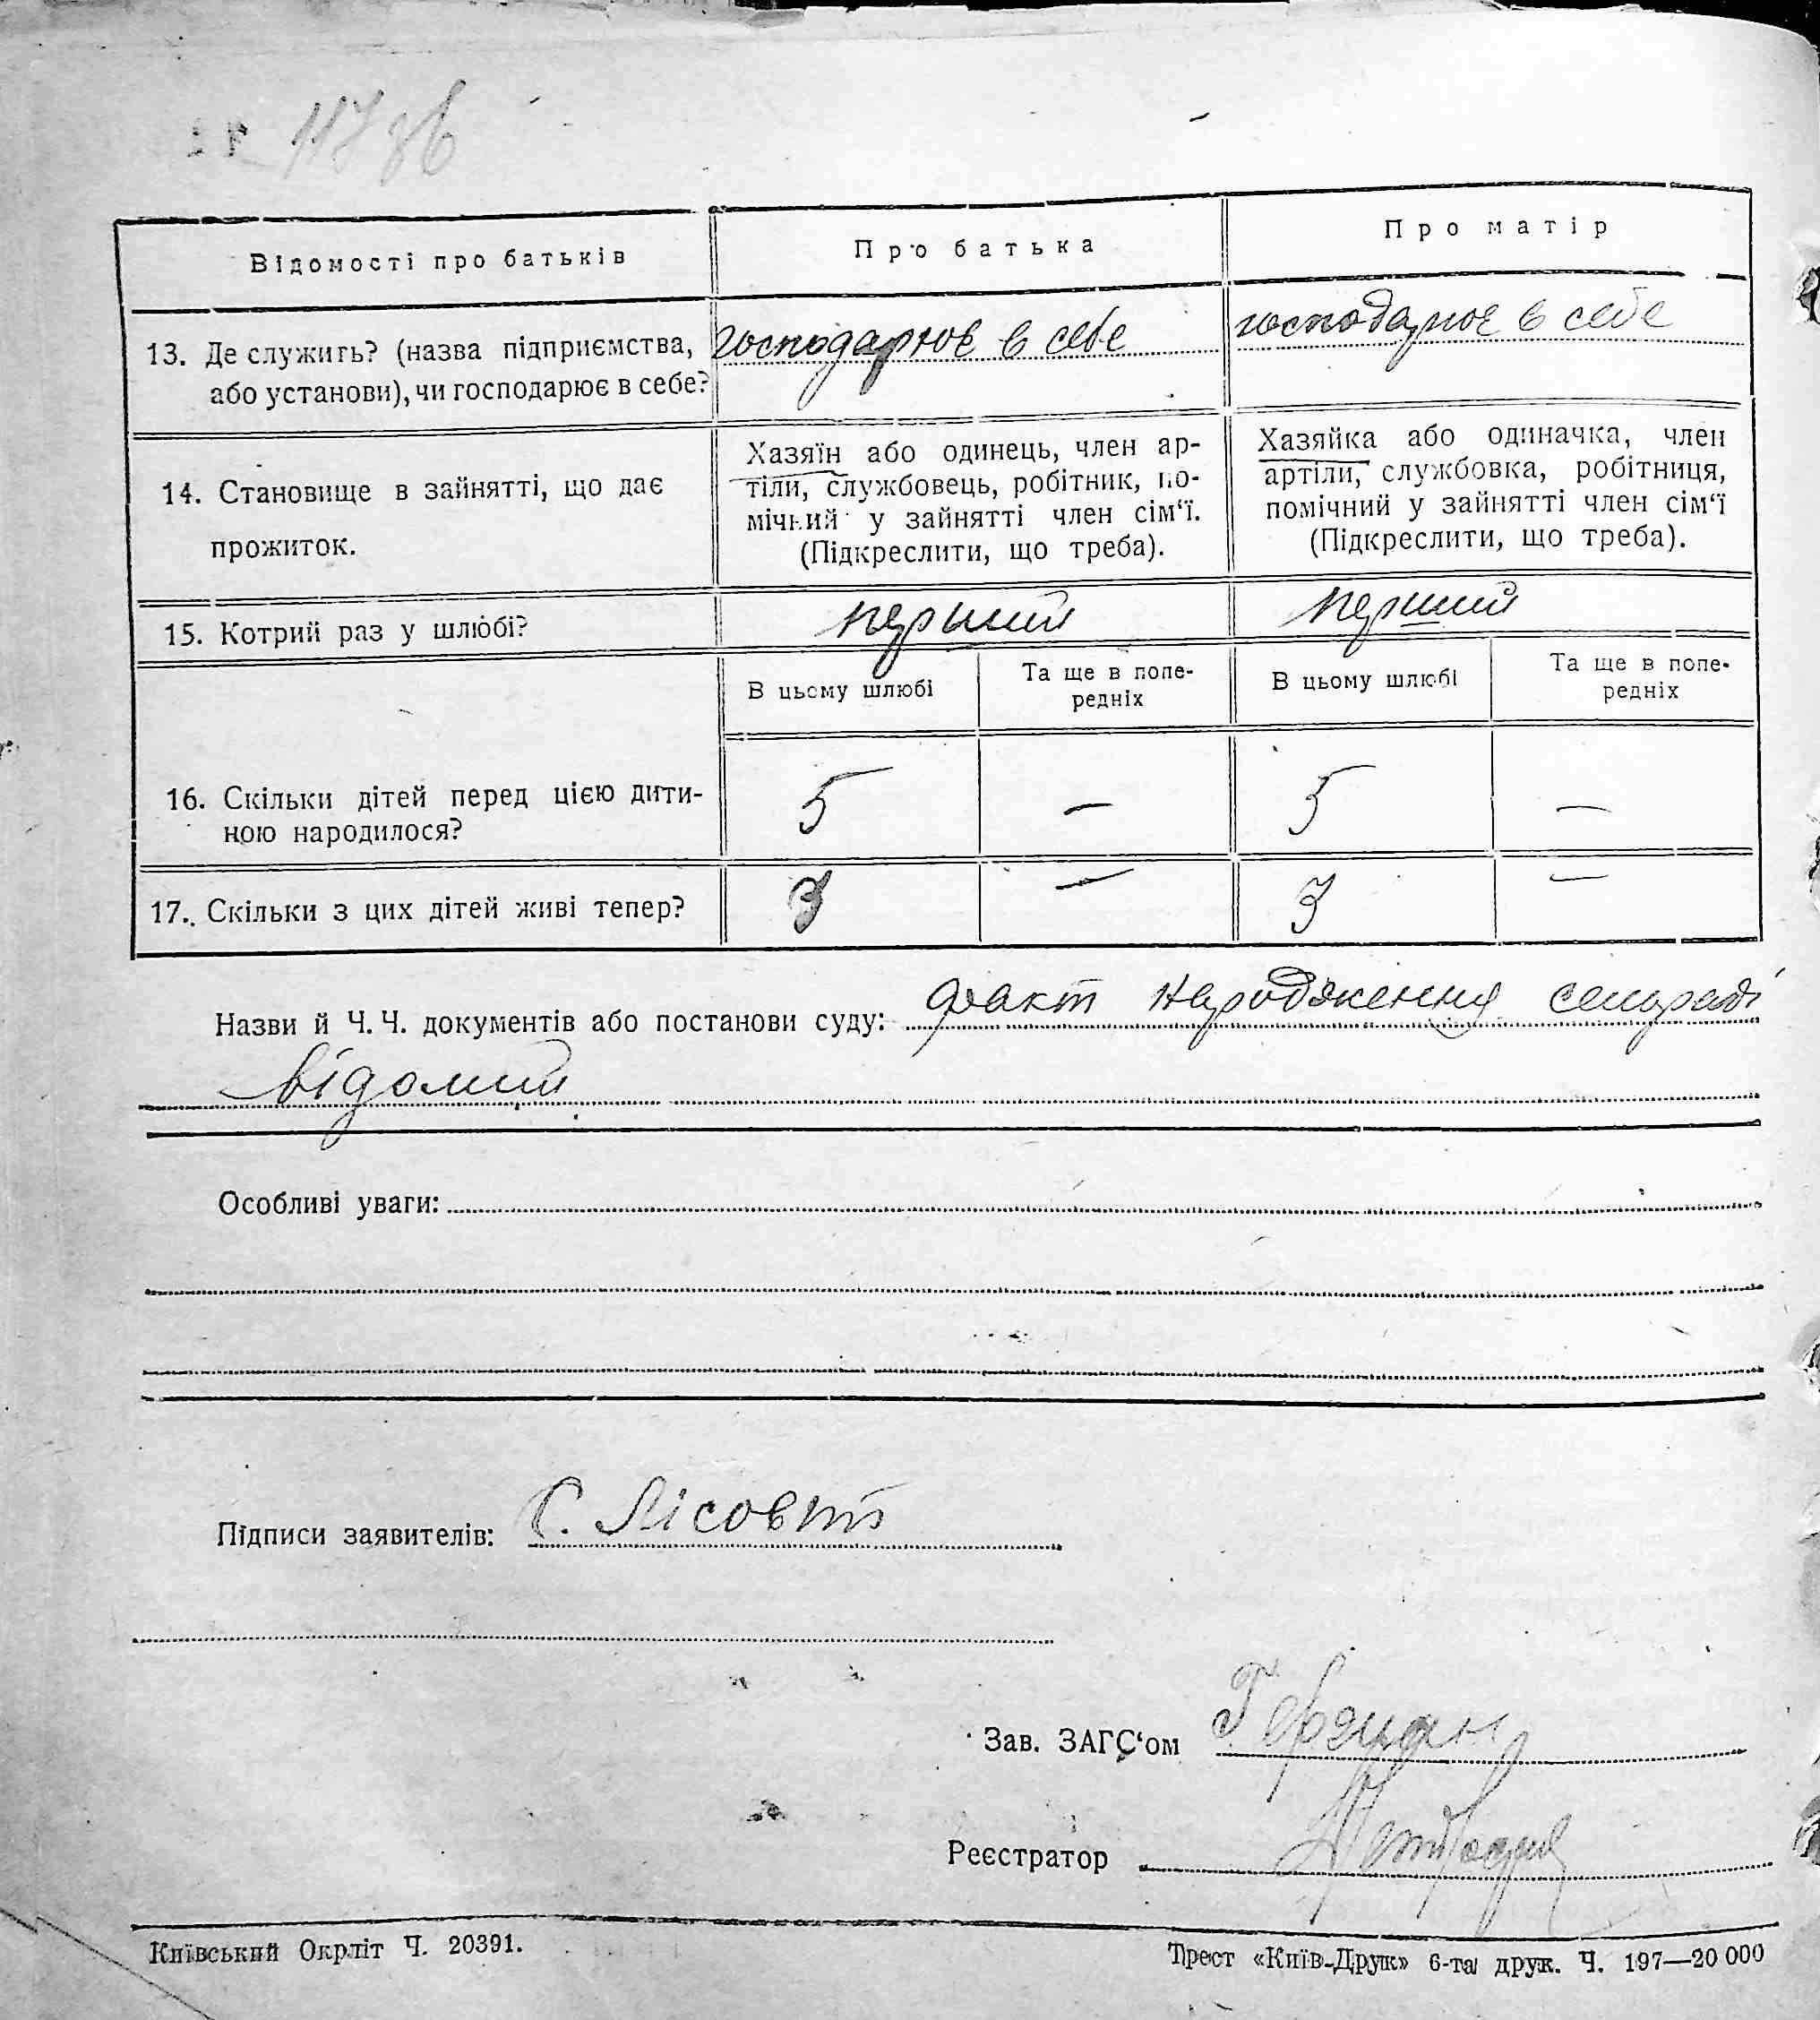 117 зв
Відомості про батьків
Про батька
Про матір
13. Де служить? (назва підприємства,
або установи), чи господарює в себе?
господарює в себе
господарює в себе
14. Становище в зайнятті, що дає
прожиток.
Хазяїн або одинець, член ар-
тіли, службовець, робітник, по-
мічний у зайнятті член сім‘ї.
(Підкреслити, що треба).
Хазяйка або одиначка, член
артіли, службовка, робітниця,
помічний у зайнятті член сім‘ї
(Підкреслити, що треба).
15. Котрий раз у шлюбі?
перший
перший
В цьому шлюбі
Та ще в попе-
редніх
В цьому шлюбі
Та ще в попе-
редніх
16. Скільки дітей перед цією дити-
ною народилося?
5
—
5
—
17. Скільки з цих дітей живі тепер?
3
—
3
—
Назви й Ч. Ч. документів або постанови суду: факт народження сельраді
відомий
Особливі уваги:
Підписи заявителів: С. Лісовть
Зав. ЗАГС‘ом
Реєстратор
Київський Окрліт Ч. 20391.
Трест «Київ-Друк» 6-та друк. Ч. 197—20 000